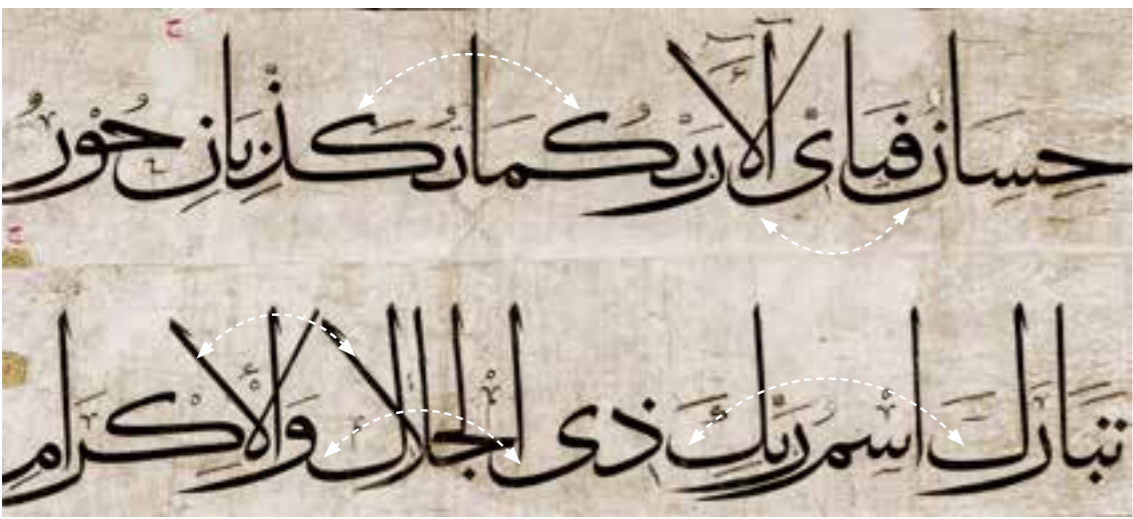 حِسَانٌ فَبِاَىِّ آلَاءِ رَبِّكُمَا تُكَذِّبَانِ حُوْرٌ
تَبَارَكَ اسْمُ رَبِّكَ ذِى الْجَلَالِ وَالْاِكْرَامِ